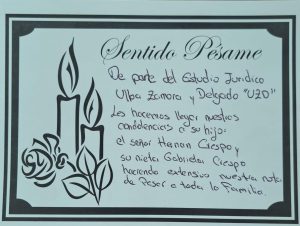 Sentido Pésame
De parte del Estudio Juridico
Ulba Zamora y Delgado "UZD"
Les hacemos llegar nuestras
condolencias a su hijo:
el señor Hernan Crespo y
su nieta Gabriela Crespo
haciendo extensivo nuestra nota
de Pesar a toda la Familia.